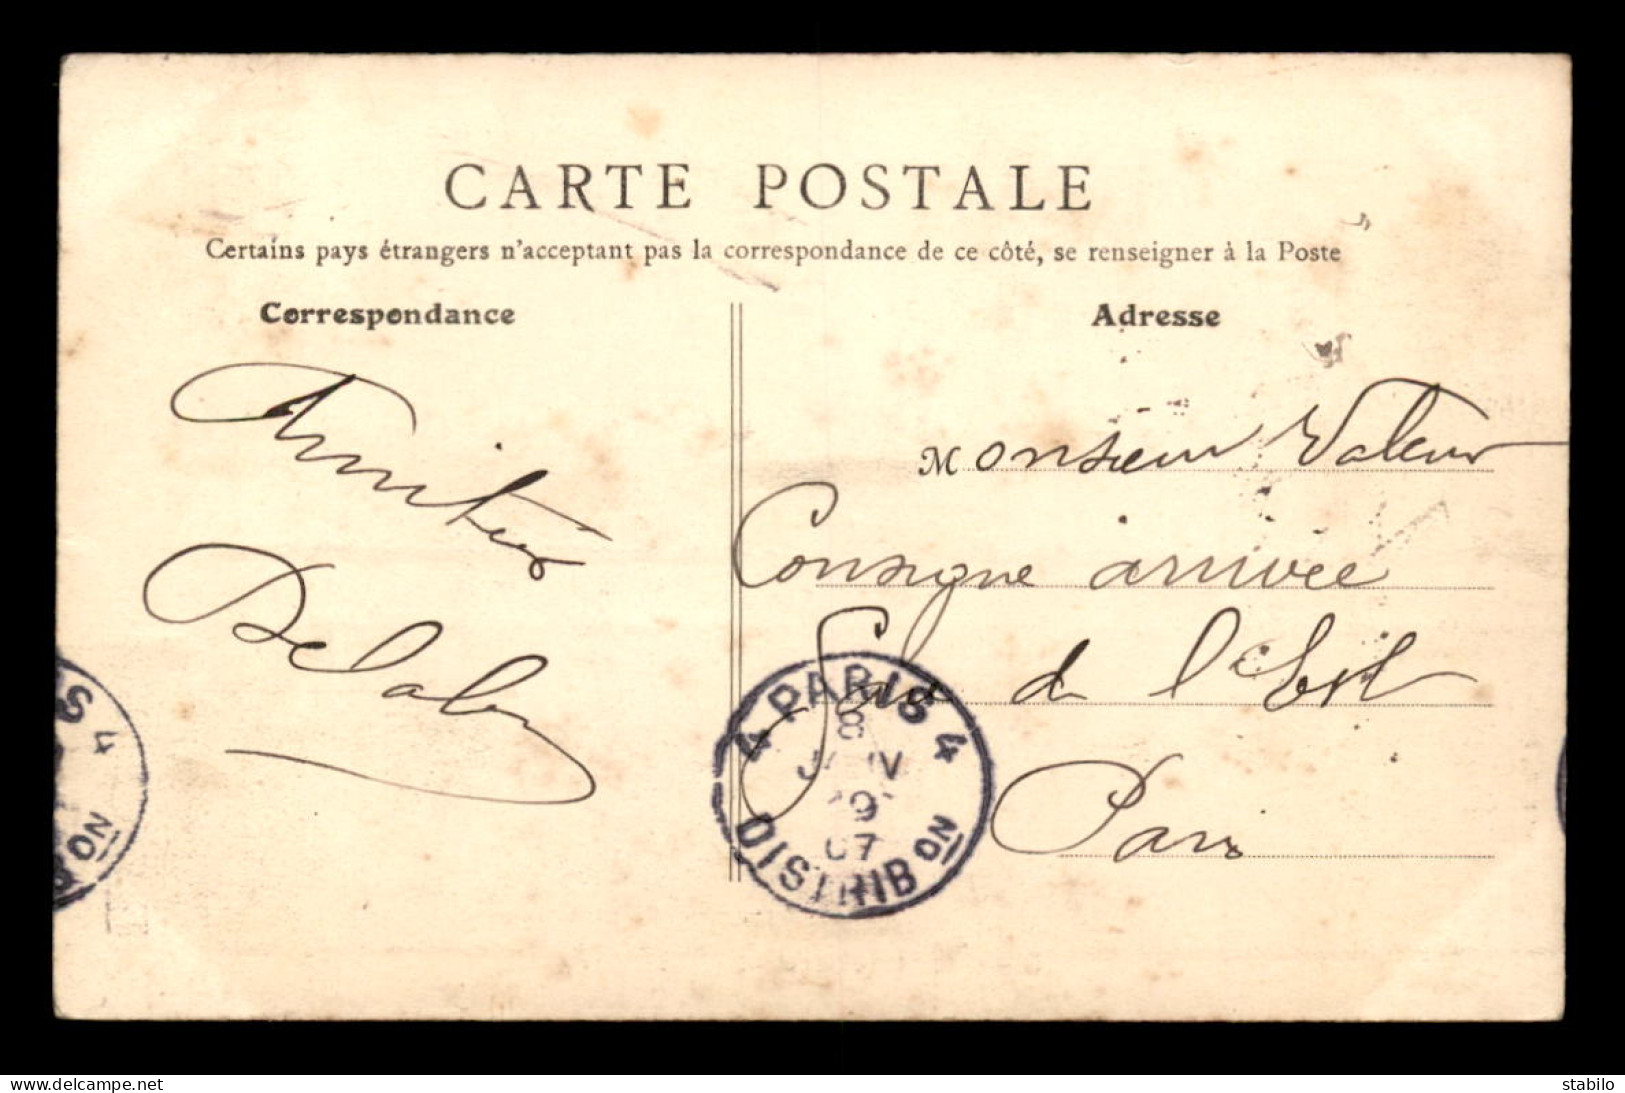 CARTE POSTALE
Certains pays étrangers n'acceptant pas la correspondance de ce côté, se renseigner à la Poste
Correspondance
Adresse
Amitiés
Delaby
Monsieur Valeur
Consigne arrivée
Gare de l'Est
Paris
4 PARIS 4
8
JANV
07
DISTRIB ON
S 4
ON
www.delcampe.net
stabilo